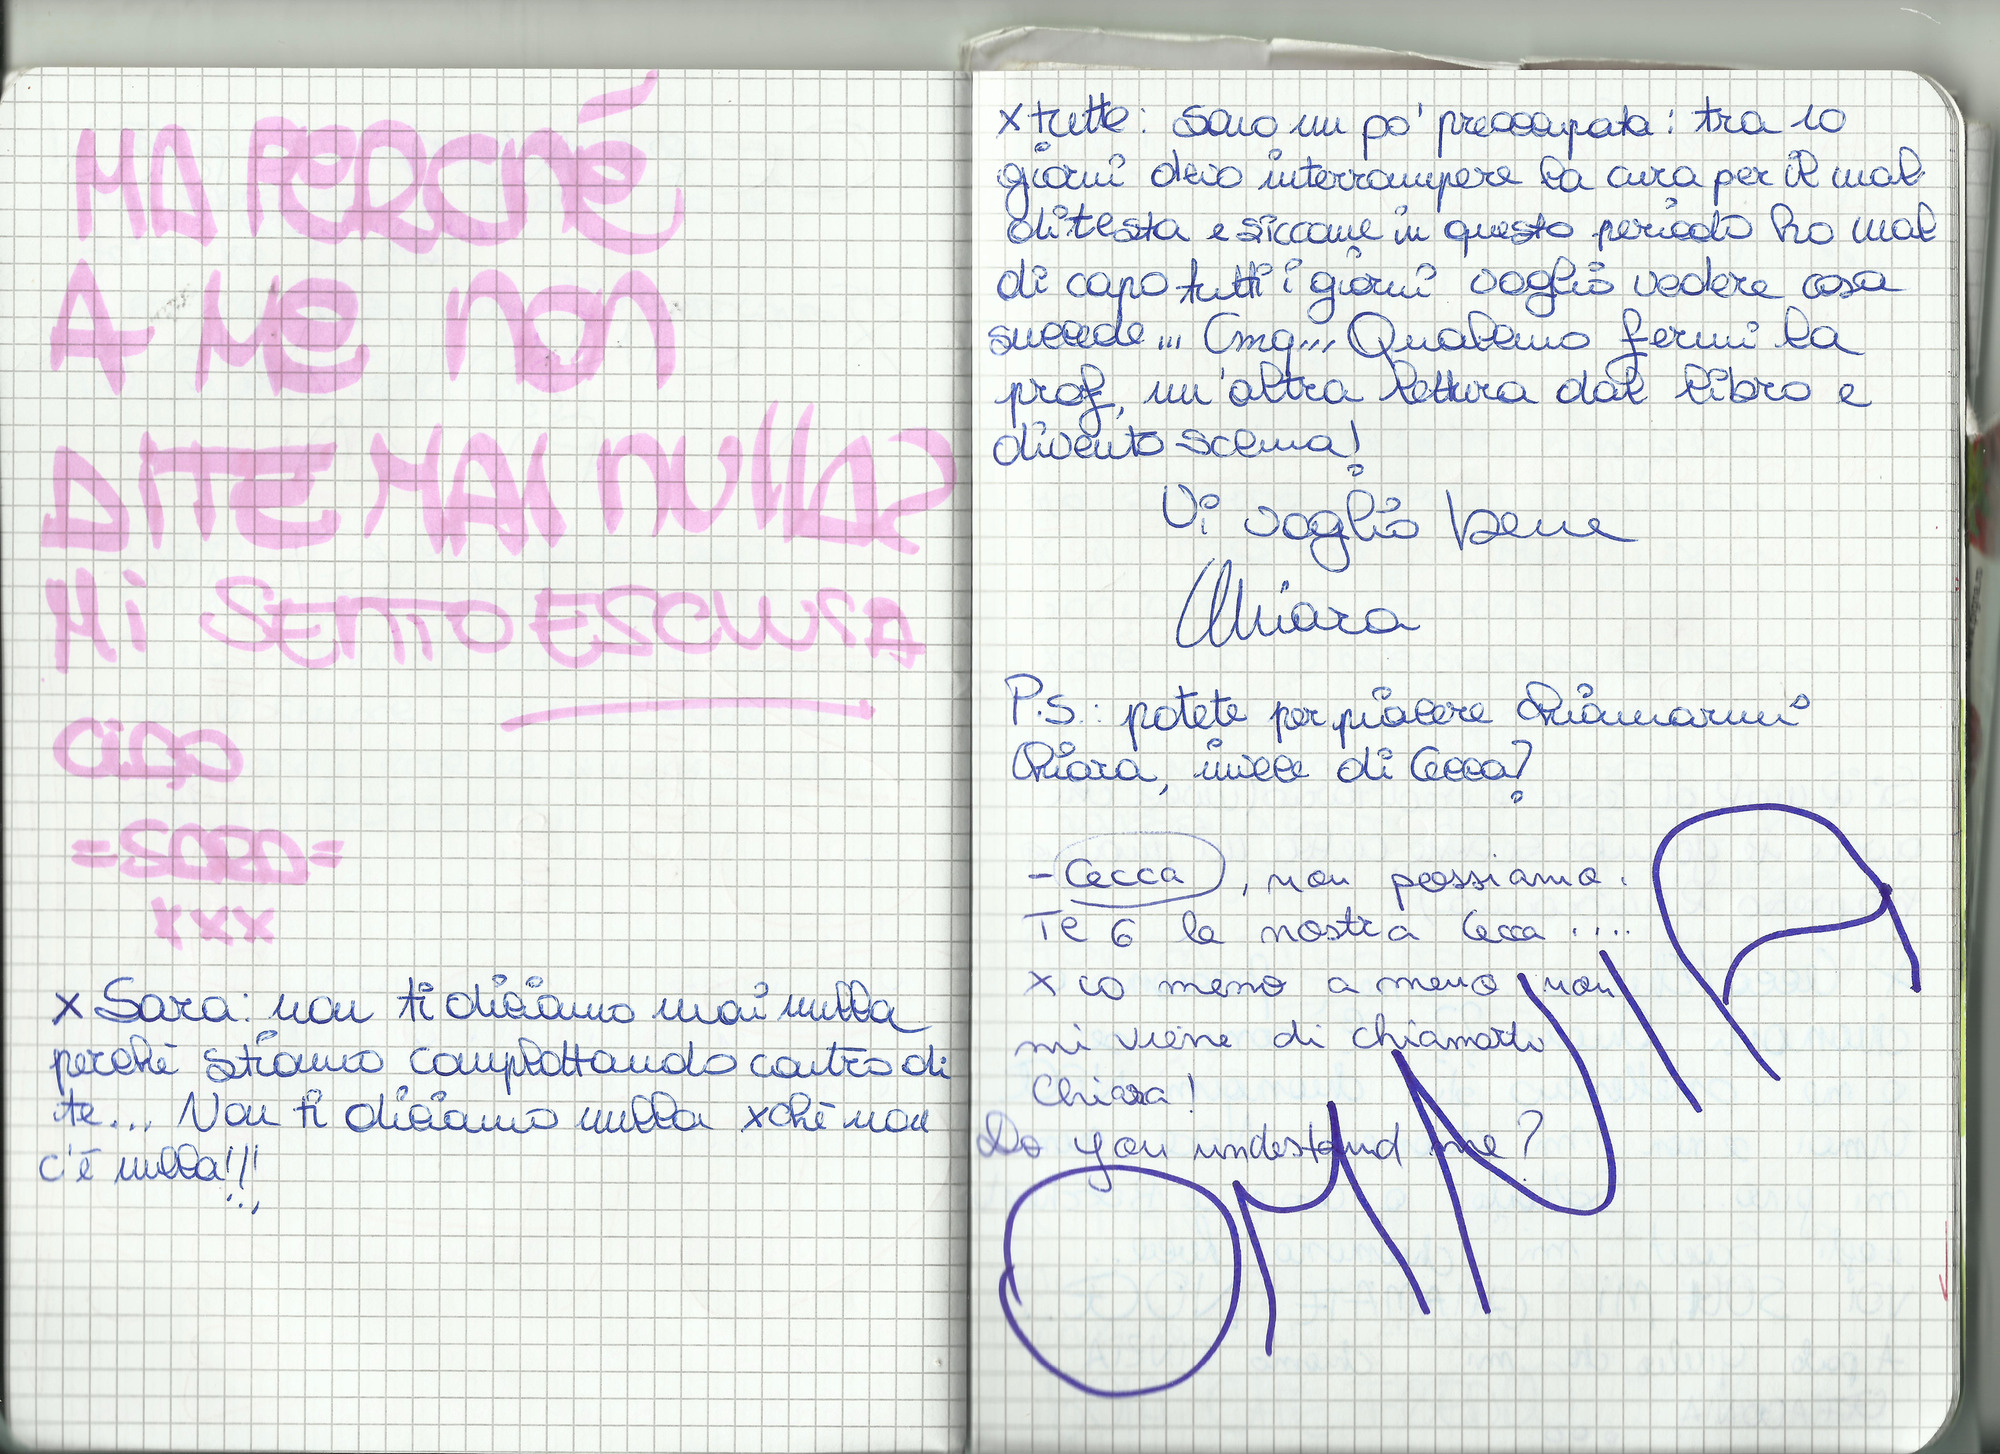 MA PERCHÉ
A ME NON
DITE MAI NULLA?
Mi SENTO ESCLUSA
CiAO
=SARA=
xxx
x Sara: non ti diciamo mai nulla
perché stiamo complottando contro di
te... Non ti diciamo nulla xché non
c'è nulla!!!
x tutte: sono un po' preoccupata: tra 10
giorni devo interrompere la cura per il mal
di testa e siccome in questo periodo ho mal
di capo tutti i giorni voglio vedere cosa
succede... Cmq... Qualcuno fermi la
prof, un'altra lettura dal libro e
divento scema!
Vi voglio bene
Chiara
P.S.: potete per piacere chiamarmi
Chiara, invece di Cecca?
- Cecca, non possiamo.
Te 6 la nostra Cecca ....
x co meno a meno non
mi viene di chiamarti
Chiara!
Do you undestand me?